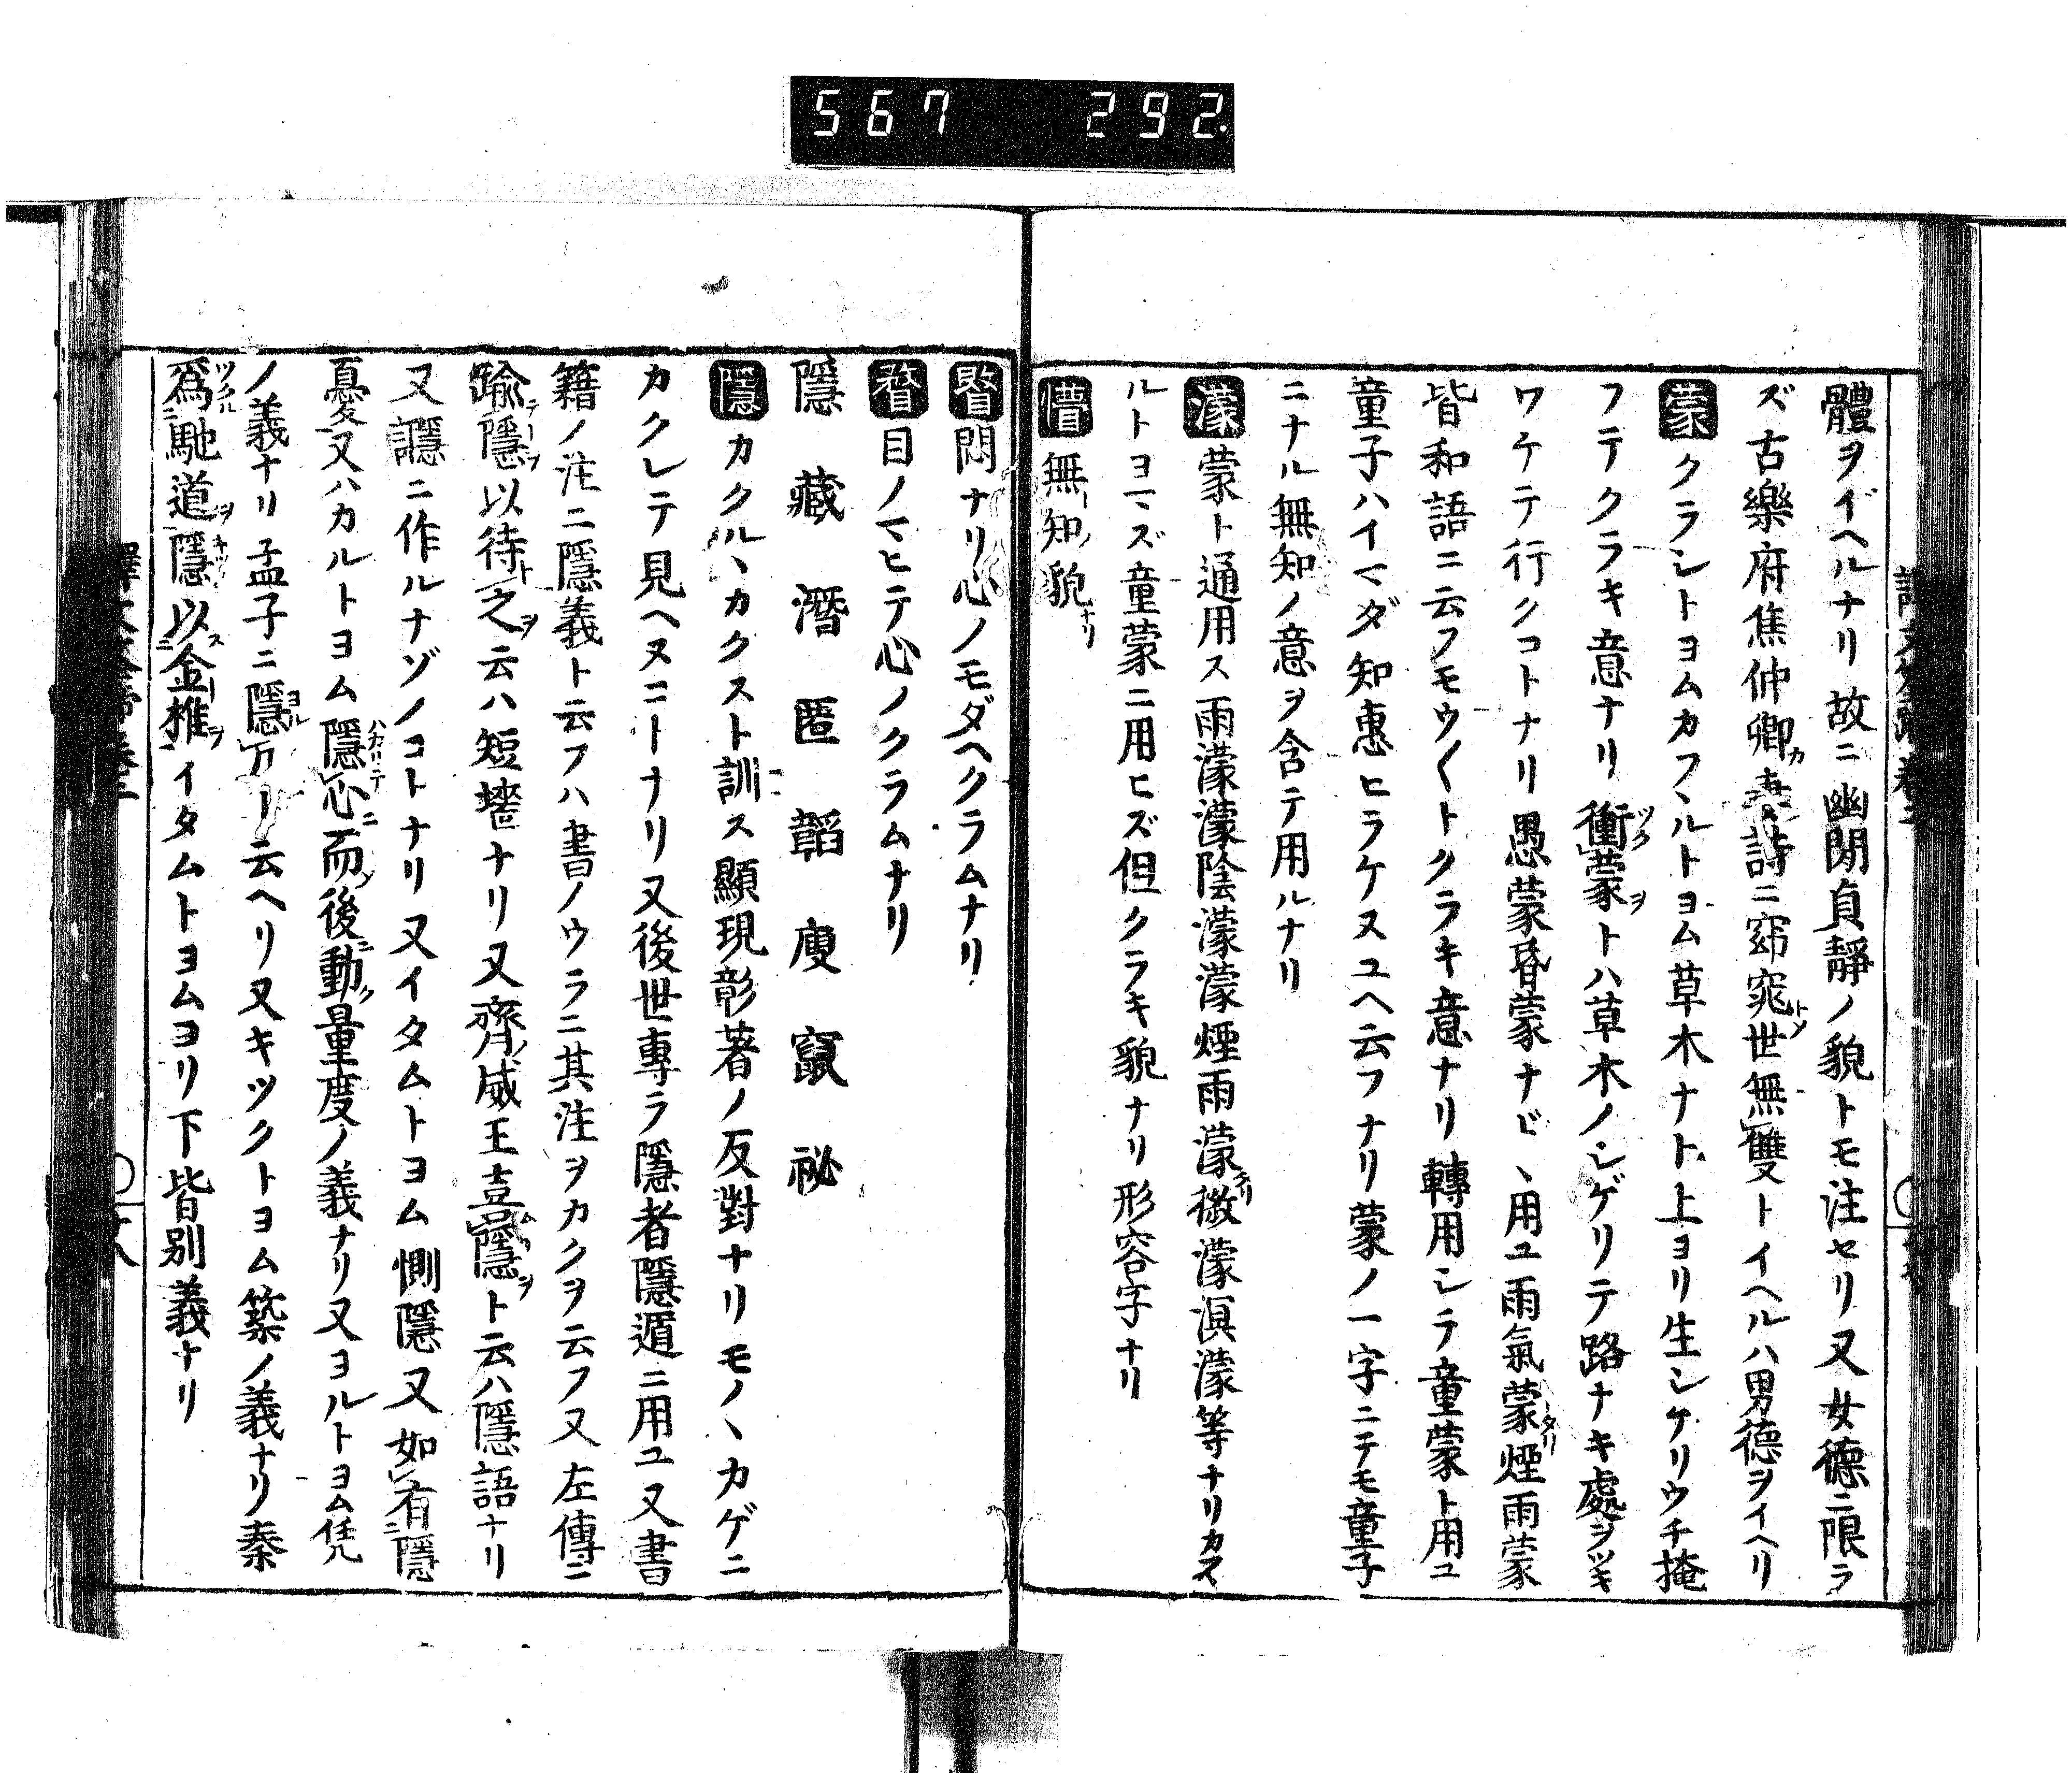 567 292.
體ヲイヘルナリ故ニ幽閉貞靜ノ貌トモ注セリ又女德ニ限ラ
ズ古樂府焦仲卿カ妻詩ニ窈窕トノ世無雙トイヘルハ男德ヲイヘリ
蒙クラシトヨムカフヽルトヨム草木ナト上ヨリ生シケリウチ掩
フテクラキ意ナリ衝ツク蒙ヲトハ草木ノシゲリテ路ナキ處ヲツキ
ワケテ行クコトナリ愚蒙昏蒙ナドヽ用ユ雨氣蒙タリ煙雨蒙
皆和語ニ云フモウ〱トクラキ意ナリ轉用シラ童蒙ト用ユ
童子ハイマダ知惠ヒラケヌユヘ云フナリ蒙ノ一字ニテモ童子
ニナル無知ノ意ヲ含テ用ルナリ
濛蒙ト通用ス雨濛濛陰濛濛煙雨濛タリ微濛溟濛等ナリカス
ルトヨマズ童蒙ニ用ヒズ但クラキ貌ナリ形容字ナリ
懵無知ノ貌ナリ
暋悶ナリ心ノモダヘクラムナリ
瞀目ノマヒテ心ノクラムナリ
隱藏潛匿韜廋竄祕
隱カクルヽカクスト訓ス顯現彰著ノ反對ナリモノヽカゲニ
カクレテ見ヘヌヿナリ又後世專ラ隱者隱遁ニ用ユ又書
籍ノ注ニ隱義ト云フハ書ノウラニ其注ヲカクヲ云フ又左傳ニ
踰隱以待之ヲ云ハ短墻ナリ又齊ノ威王喜隱ヲト云ハ隱語ナリ
又讔ニ作ルナゾノコトナリ又イタムトヨム惻隱又如有隱
憂又ハカルトヨム隱ハカリテ心ニ而後ニ動ク量度ノ義ナリ又ヨルトヨム凭
ノ義ナリ孟子ニ隱ヨル几ニ云ヘリ又キツクトヨム築ノ義ナリ秦
爲ツクル馳道ヲ隱キツクニ以ス金椎ヲイタムトヨムヨリ下皆別義ナリ